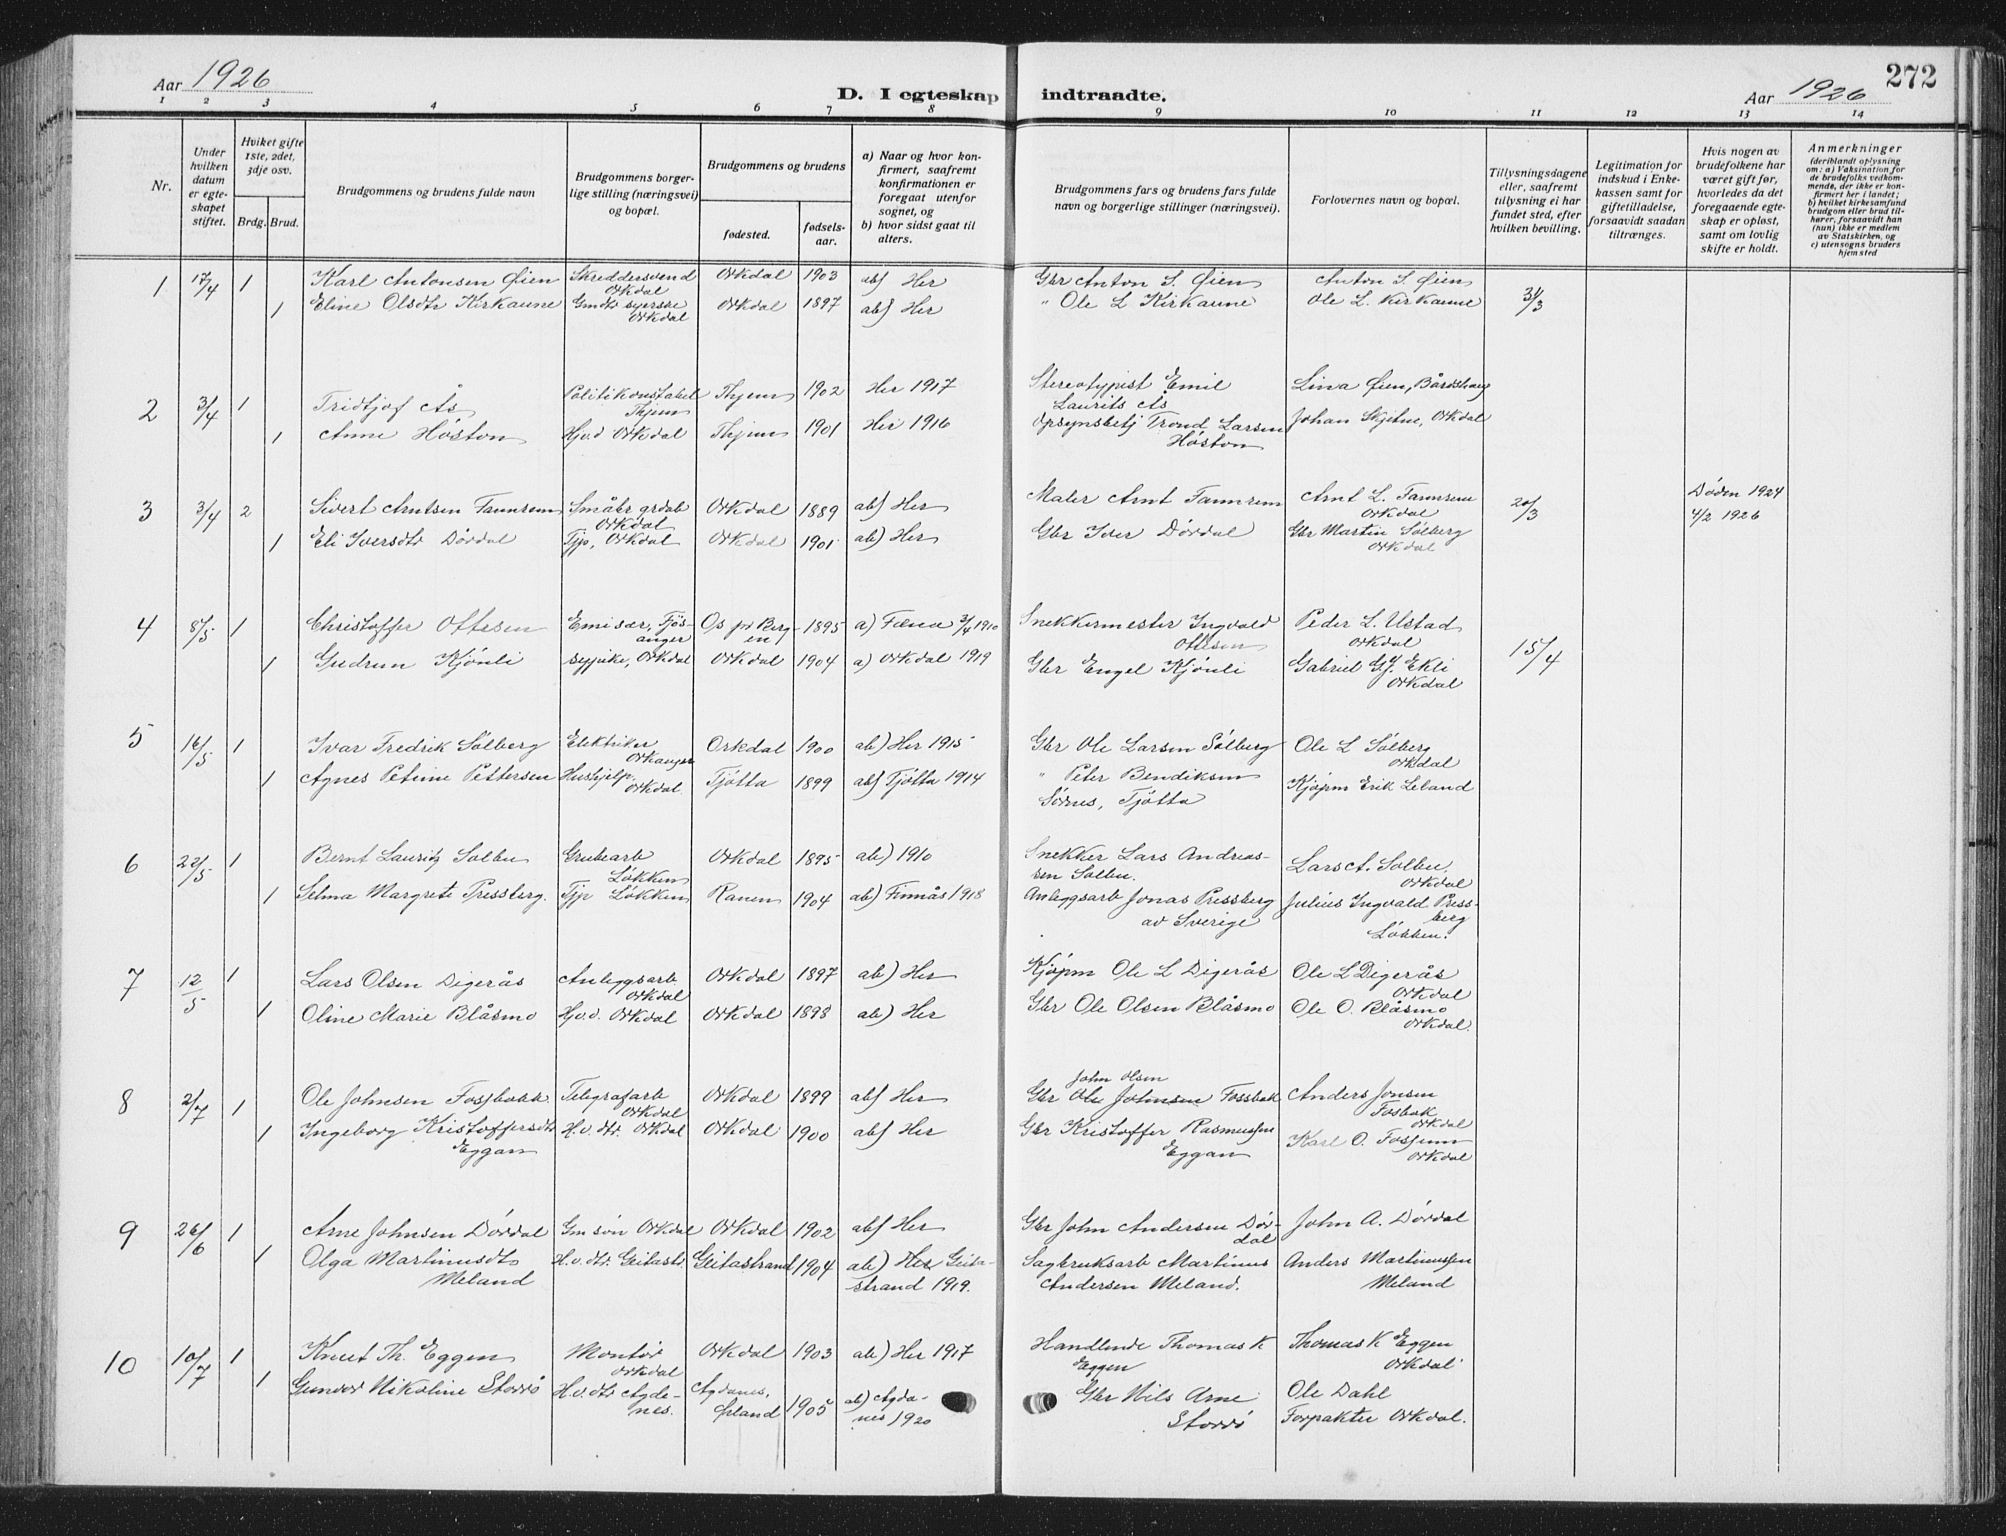 Aar 1926
D. I egteskap indtraadte.
Aar 1926
272
1 2 3 4 5 6 7 8 9 10 11 12 13 14
Nr.
Under hvilken datum er egteskapet stiftet.
Hviket gifte 1ste, 2det, 3dje osv.
Brdg. Brud.
Brudgommens og brudens fulde navn
Brudgommens borgerlige stilling (næringsvei) og bopæl.
Brudgommens og brudens
fødested.
fødselsaar.
a) Naar og hvor konfirmert, saafremt konfirmationen er foregaat utenfor sognet, og
b) hvor sidst gaat til alters.
Brudgommens fars og brudens fars fulde navn og borgerlige stillinger (næringsvei).
Forlovernes navn og bopæl.
Tillysningsdagene eller, saafremt tillysning ei har fundet sted, efter hvilken bevilling.
Legitimation for indskud i Enkekassen samt for giftetilladelse, forsaavidt saadan tiltrænges.
Hvis nogen av brudefolkene har været gift før, hvorledes da det foregaaende egteskap er opløst, samt om lovlig skifte er holdt.
Anmerkninger (deriblandt oplysning om: a) Vaksination for de brudefolks vedkommende, der ikke er konfirmert her i landet; b) hvilket kirkesamfund brudgom eller brud tilhører, forsaavidt han (hun) ikke er medlem av Statskirken, og c) utensogns bruders hjemsted
1 17/4 1 Karl Antonsen Øien Skreddersvend Orkdal Orkdal 1903 ab) Her Gbr Anton S. Øien Anton S. Øien 31/3
1 Eline Olsdtr Kirkaune Gmdtr syerske Orkdal Orkdal 1897 ab) Her " Ole L Kirkaune Ole L. Kirkaune
2 3/4 1 Fridtjof Ås Politikonstabel Thjem Thjem 1902 Her 1917 Stereotypist Emil Laurits Ås Lina Øien, Bårdshaug
1 Anne Høston Hjvd Orkdal Thjem 1901 Her 1916 Opsynsbetj Trond Larsen Høston Johan Skjetne, Orkdal
3 3/4 2 Sivert Arntsen Tannrem Småbr grdab Orkdal Orkdal 1889 ab) Her Maler Arnt Tannrem Arnt L. Tannrem Orkdal 20/3 Døden 1924 4/2 1926
1 Eli Iversdtr Dørdal Tjp, Orkdal Orkdal 1901 ab) Her Gbr Iver Dørdal Gbr Martin Sølberg Orkdal
4 8/5 1 Christoffer Ottesen Emisær, Fjøsanger Os pr Bergen 1895 a) Fana 3/4 1910 Snekkermester Ingvald Ottesen Peder L. Ustad Orkdal 15/4
1 Gudrun Kjønli sypike, Orkdal Orkdal 1904 a) Orkdal 1919 Gbr Engel Kjønli Gabriel Ekli Orkdal
5 16/5 1 Ivar Fredrik Sølberg Elektriker Orkanger Orkdal 1900 ab) Her 1915 Gbr Ole Larsen Sølberg Ole L Sølberg Orkdal
1 Agnes Petrine Pettersen Hushjelp. Orkdal. Tjøtta 1899 ab) Tjøtta 1914 " Peter Bendiksen Sørnes, Tjøtta Kjøpm Erik Leland
6 22/5 1 Bernt Lauritz Solbu Grubearb Løkken Orkdal 1895 ab) 1910 Snekker Lars Andreassen Solbu. Lars A. Solbu, Orkdal
1 Selma Margrete Pressberg. Tjp Løkken Ranen 1904 ab) Finnås 1918 Anleggsarb Jonas Pressberg av Sverige Julius Ingvald Pressberg Løkken.
7 12/5 1 Lars Olsen Digerås Anleggsarb Orkdal Orkdal 1897 ab) Her Kjøpm Ole L Digerås Ole L Digerås Orkdal
1 Oline Marie Blåsmo Hjvd. Orkdal Orkdal 1898 ab) Her Gbr Ole Olsen Blåsmo Ole O. Blåsmo Orkdal.
8 2/7 1 Ole Johnsen Fossbakk Telegrafarb Orkdal Orkdal 1899 ab) Her Gbr John Olsen Ole Johnsen Fossbak Anders Jonsen Fosbak Orkdal
1 Ingeborg Kristoffersdtr Eggan H.v.dtr. Orkdal Orkdal 1900 ab) Her Gbr Kristoffer Rasmussen Eggan Karl O. Fossum Orkdal
9 26/6 1 Arne Johnsen Dørdal Gm søn Orkdal Orkdal 1902 ab) Her Gbr John Andersen Dørdal John A. Dørdal
1 Olga Martinusdtr Meland H.v.dtr. Geitastr. Geitastrand 1904 ab) Her Geitastrand 1919. Sagbruksarb Martinus Andersen Meland. Anders Martinussen Meland
10 10/7 1 Knut Th. Eggen Montør Orkdal Orkdal 1903 ab) Her 1917 Handlende Thomas K Eggen Thomas K Eggen Orkdal
1 Gunvor Nikoline Storrø H.v.dtr Agdenes. Agdenes, Ørland 1905 ab) Agdanes 1920 Gbr Nils Arne Storrø Ole Dahl Forpakter Orkdal.